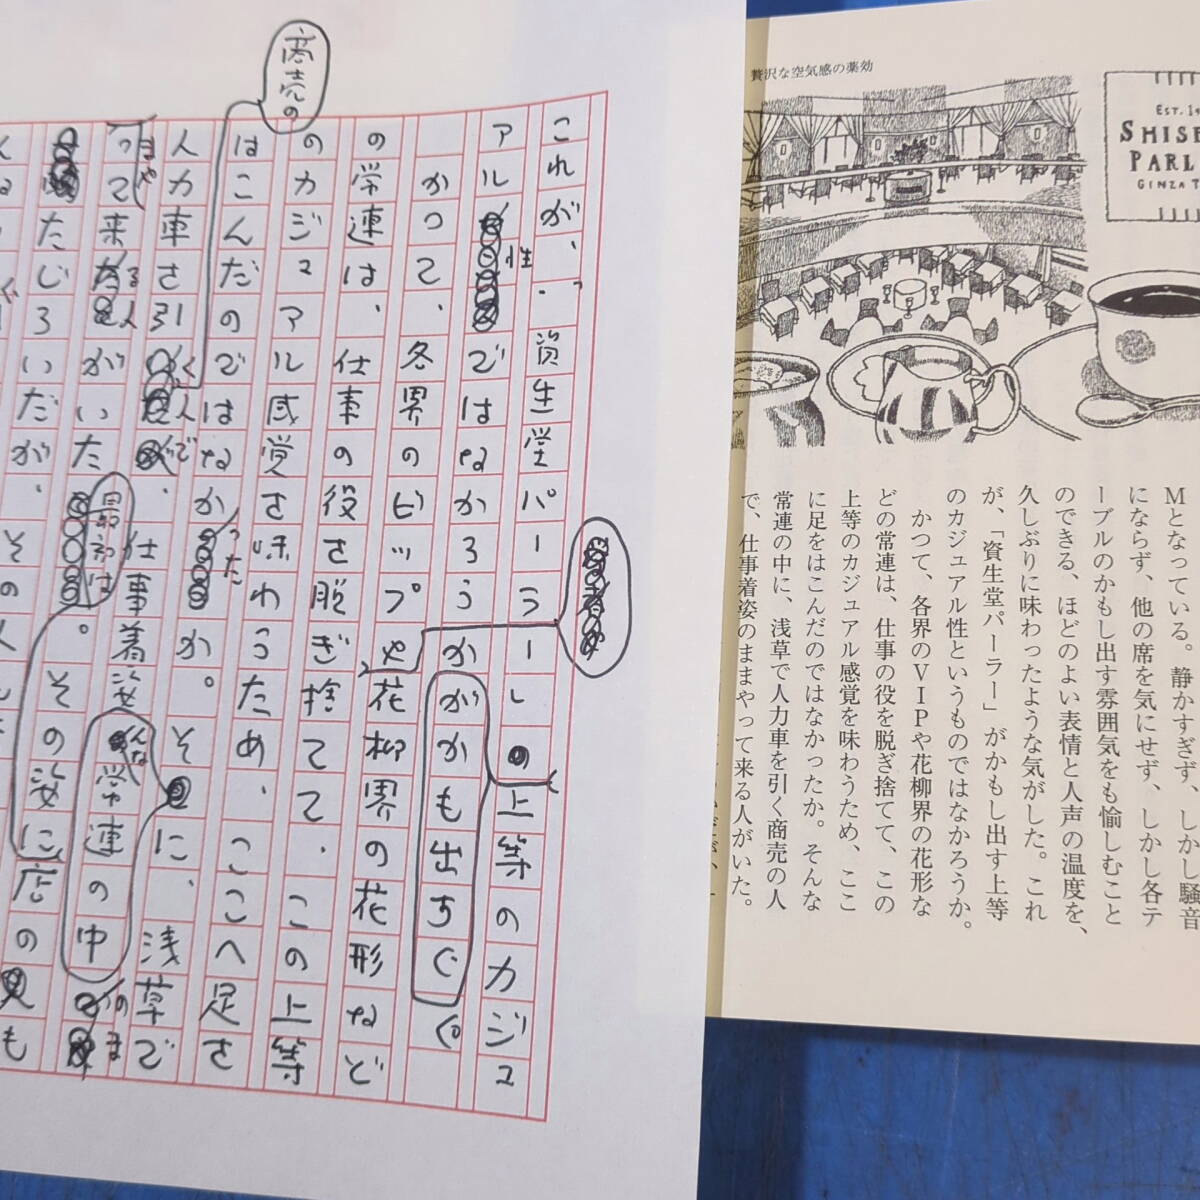 商売の
これが、資生堂パーラーし 上等のカジュ
アル性ではなかろうかがかも出ちぐ
かつて、各界のビップや花柳界の花形など
の常連は、仕事の役を脱ぎ捨てて、この上等
のカジュアル感覚を味わうため、ここへ足を
はこんだのではなかったか。そに、浅草で
人力車を引く人で、仕事着姿 常連の中 のま
まやって来る人がいた。最初は その姿に店の
たじろいだが、その
贅沢な空気感の薬効
EST. 19
SHISE
PARL
GINZA T
Mとなっている。静かすぎず、しかし騒音
にならず、他の席を気にせず、しかし各テ
ーブルのかもし出す雰囲気をも愉しむこと
のできる、ほどのよい表情と人声の温度を、
久しぶりに味わったような気がした。これ
が、「資生堂パーラー」がかもし出す上等
のカジュアル性というものではなかろうか。
かつて、各界のVIPや花柳界の花形な
どの常連は、仕事の役を脱ぎ捨てて、この
上等のカジュアル感覚を味わうため、ここ
に足をはこんだのではなかったか。そんな
常連の中に、浅草で人力車を引く商売の人
で、仕事着姿のままやって来る人がいた。